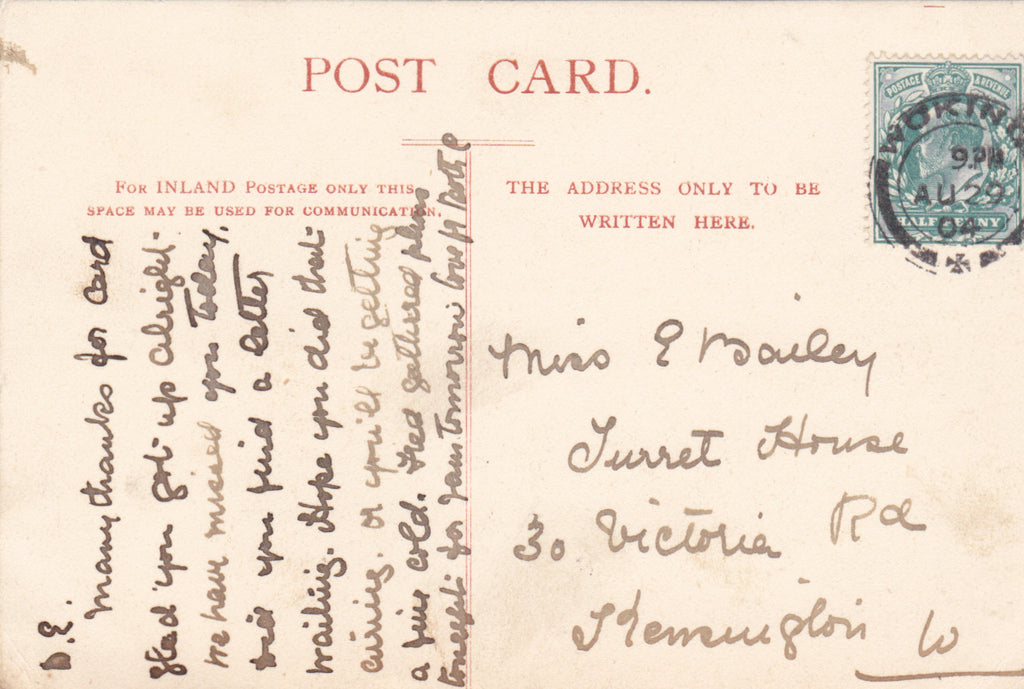 POST CARD.
FOR INLAND POSTAGE ONLY THIS
SPACE MAY BE USED FOR COMMUNICATION.
THE ADDRESS ONLY TO BE
WRITTEN HERE.
POSTAGE & REVENUE
HALFPENNY
WOKING
9.PM
AU 29
04
D. E.
Many thanks for card
glad you got up alright
we have missed you today.
did you find a letter
waiting. Hope you did that
airing. or you'll be getting
a fine cold. Fred gathered plums
tonight for jam tomorrow love
Miss E Bailey
Turret House
30 Victoria Rd
Kensington W